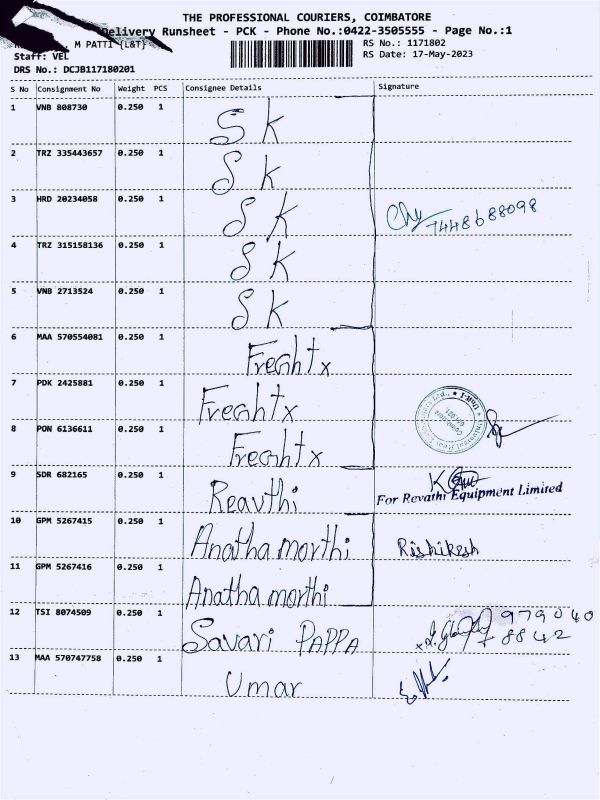 THE PROFESSIONAL COURIERS, COIMBATORE
Delivery Runsheet - PCK - Phone No.:0422-3505555 - Page No.:1
M PATTI {L&T} RS No.: 1171802
Staff: VEL RS Date: 17-May-2023
DRS No.: DCJB117180201
S No Consignment No Weight PCS Consignee Details Signature
1 VNB 808730 0.250 1 SK
2 TRZ 335443657 0.250 1 SK
3 HRD 20234058 0.250 1 SK 7448688098
4 TRZ 315158136 0.250 1 SK
5 VNB 2713524 0.250 1 SK
6 MAA 570554081 0.250 1 Freght x
7 PDK 2425881 0.250 1 Freght x
8 PON 6136611 0.250 1 Freght x
9 SDR 682165 0.250 1 Reavthi For Revathi Equipment Limited
10 GPM 5267415 0.250 1 Anatha morthi Rishikesh
11 GPM 5267416 0.250 1 Anatha morthi
12 TSI 8074509 0.250 1 Savari PAPPA 979040
8842
13 MAA 570747758 0.250 1 Umar